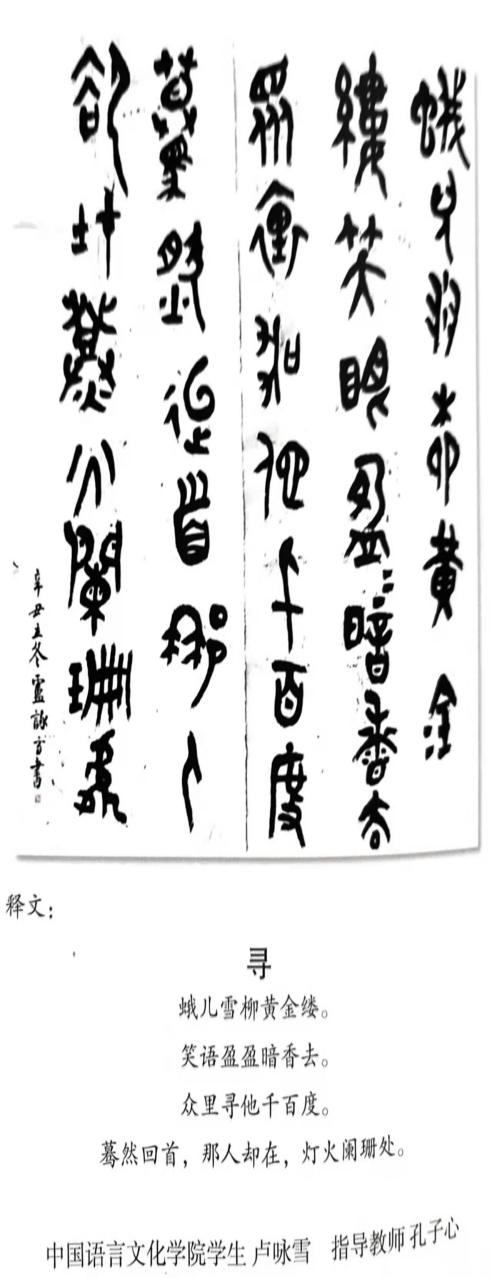 蛾兒雪柳黃金
縷笑盈〻暗香去
眾尋他千百度
驀然迴首那人
卻在燈火闌珊處
辛丑立冬盧詠雪書
释文：
寻
蛾儿雪柳黄金缕。
笑语盈盈暗香去。
众里寻他千百度。
蓦然回首，那人却在，灯火阑珊处。
中国语言文化学院学生 卢咏雪 指导教师 孔子心